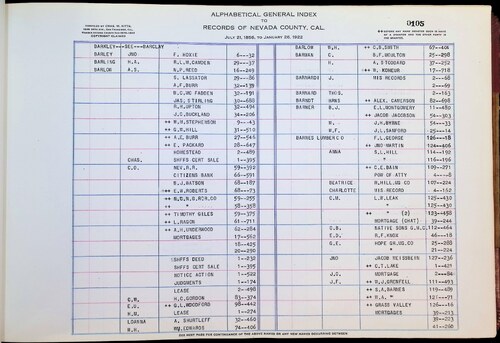 ALPHABETICAL GENERAL INDEX
TO
RECORDS OF NEVADA COUNTY, CAL.
JULY 21, 1856, TO JANUARY 26, 1922
0105
BARKLEY---SEE---BARCLAY
BARLEY JNO F. MOXIE 6---32
BARLING H.A. R.L.H. CAMDEN 29---37
BARLOW A.E. N.P. REID 16---249
S. LASSATER 29---86
A.F. BURR 32---139
W.C. MC FADDEN 32---191
JAS. STIRLING 30---688
R.H. UPTON 32---494
J.C. BUCKLAND 34---206
++ W.H. STEPHENSON 9---43
++ G.N. HILL 31---510
++ A.E. BURR 27---547
++ E. PACKARD 28---647
HOMESTEAD 2---489
CHAS. SHFFS CERT SALE 1---395
E.O. NEV. N.B. 59---392
CITIZENS BANK 66---591
W.J. WATSON 68---187
++ E.W. ROBERTS 68---273
59---255
++ " 58---358
++ TIMOTHY GILES 59---375
++ L. RAGON 61---711
++ A.H. UNDERWOOD 62---284
MORTGAGES 17---562
18---425
20---298
SHFFS DEED 1---232
SHFFS CERT SALE 1---395
NOTICE ACTION 1---522
JUDGMENTS 1---174
LEASE 2---498
G.W. H.C. GORDON 83---374
E.O. ++ G.L. WOODFORD 98---442
H.M. LEASE 1---274
LOANNA A. SHURTLEFF 32---460
W.H. WM. EDWARDS 74---406
BARLOW W.H. ++ C.B. SMITH 67---404
BARMAN C. B.F. MOULTON 25---298
H. A. STODDARD 37---252
++ H. KONEUR 17---718
BARNARDT J. HIS RECORD 2---68
2---69
BARNARD THOS. " 2---163
BARNDT HANS ++ ALEX. CARERSON 82---698
BARNER B.J. E.L. MONTGOMERY 11---489
++ JACOB JACOBSON 54---303
W. J.H. BYRNE 54---33
W.F. J.L. SANFORD 25---14
BARNES LUMBER CO F.L. GEORGE 126---18
++ JNO MARTIN 124---406
ANNA S.L. HILL 114---192
++ " 116---196
++ C.E. BAIN 109---271
POW OF ATTY 4---8
BEATRICE B. HILL, GU CO 107---224
CHARLOTTE HIS RECORD 4---152
C.M. L.B. LEAK 125---430
++ " 125---430
++ " (2) 123---458
MORTGAGE (CHAT) 39---244
C.B. NATIVE SONS G.W.C. 112---464
E.D. R.F. KNOX 46---18
G.E. HOPE GR. UG. CO 25---288
" 21---224
JNO JACOB WEISSBEIN 127---236
++ C.T. LAKE 1---421
J.C. MORTGAGE 2---84
J.F. ++ W.J. GRENFELL 111---493
++ S.A. BARNES 119---479
++ H.A. " 121---71
++ GRASS VALLEY 126---16
MORTGAGES 39---213
39---273
41---280